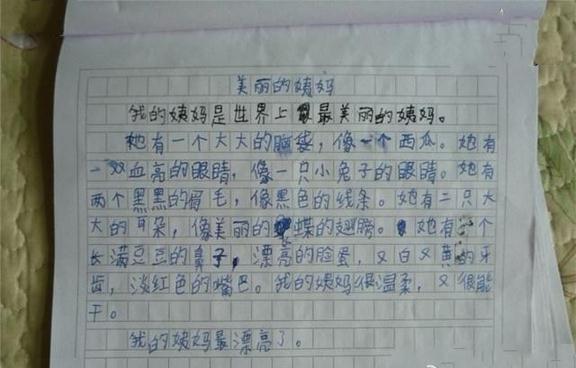 美丽的姨妈
我的姨妈是世界上最美丽的姨妈。
她有一个大大的脑袋,像一个西瓜。她有
一双血亮的眼睛,像一只小兔子的眼睛。她有
两个黑黑的眉毛,像黑色的线条。她有二只大
大的耳朵,像美丽的蝶的翅膀。她有个
长满豆豆的鼻子,漂亮的脸蛋,又白又黄的牙
齿,淡红色的嘴巴。我的姨妈很温柔,又很能
干。
我的姨妈最漂亮了。